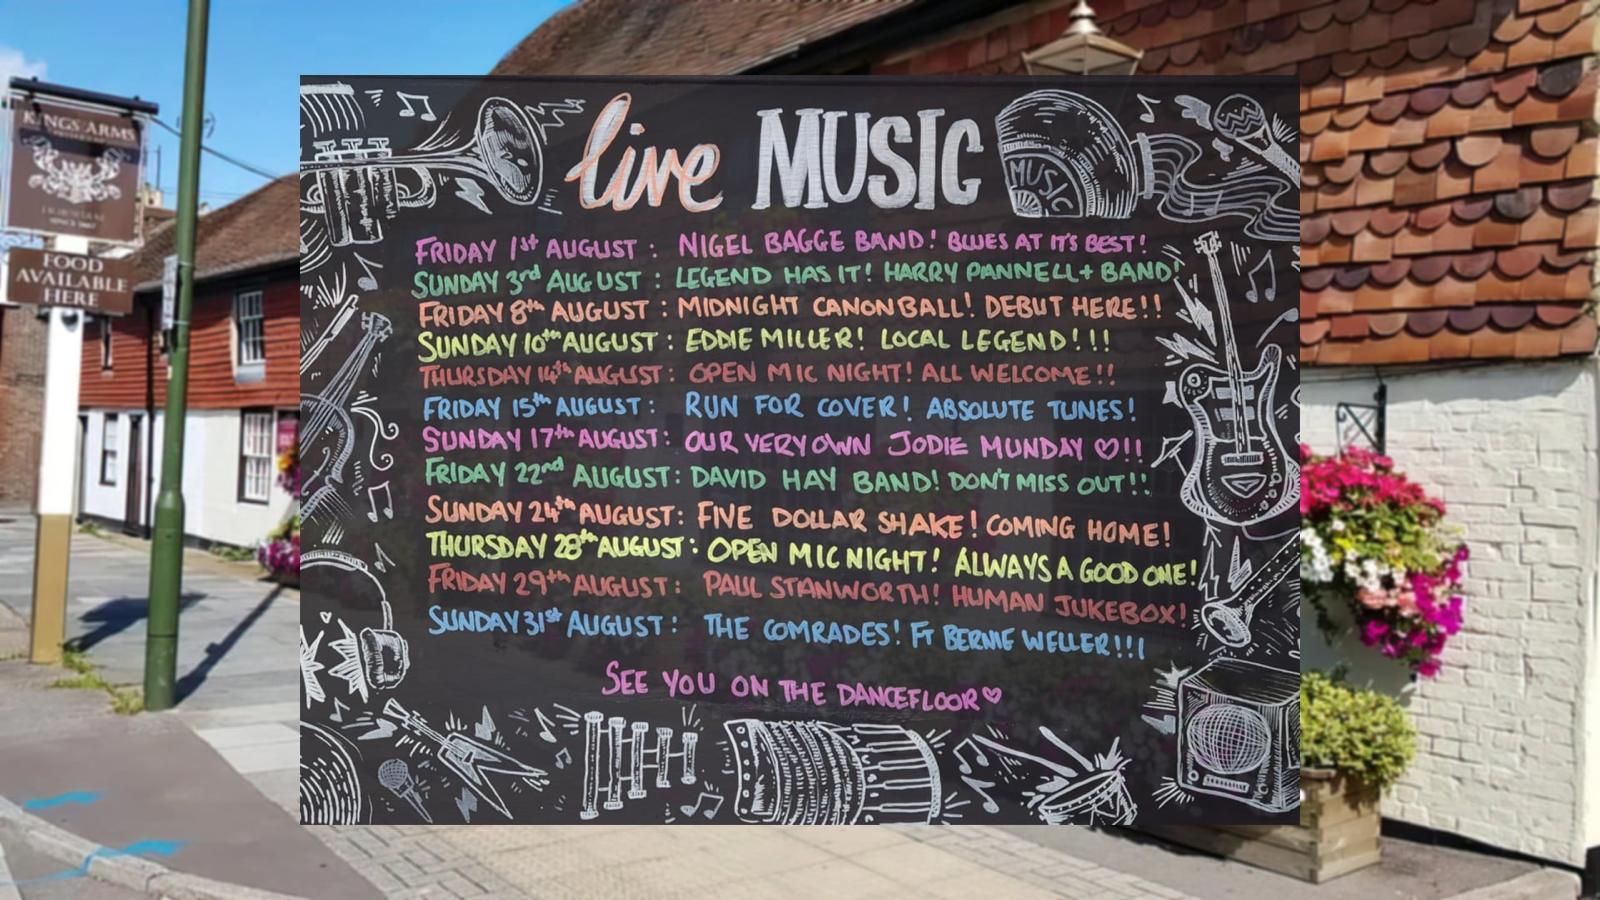 KINGS ARMS
FOOD
AVAILABLE
HERE
live MUSIC
MUSIC
FRIDAY 1st AUGUST : NIGEL BAGGE BAND! BLUES AT IT'S BEST!
SUNDAY 3rd AUGUST : LEGEND HAS IT! HARRY PANNELL + BAND!
FRIDAY 8th AUGUST : MIDNIGHT CANONBALL! DEBUT HERE!!
SUNDAY 10th AUGUST : EDDIE MILLER! LOCAL LEGEND!!!
THURSDAY 14th AUGUST : OPEN MIC NIGHT! ALL WELCOME!!
FRIDAY 15th AUGUST : RUN FOR COVER! ABSOLUTE TUNES!
SUNDAY 17th AUGUST : OUR VERY OWN JODIE MUNDAY ♡!!
FRIDAY 22nd AUGUST : DAVID HAY BAND! DON'T MISS OUT!!
SUNDAY 24th AUGUST : FIVE DOLLAR SHAKE! COMING HOME!
THURSDAY 28th AUGUST : OPEN MIC NIGHT! ALWAYS A GOOD ONE!
FRIDAY 29th AUGUST : PAUL STANWORTH! HUMAN JUKEBOX!
SUNDAY 31st AUGUST : THE COMRADES! FT BERNIE WELLER!!!
SEE YOU ON THE DANCEFLOOR ♡